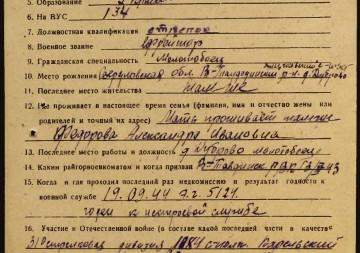 5. Образование
6. На ВУС 134
7. Должностная квалификация стрелок
8. Военное звание
9. Гражданская специальность молотобоец
10. Место рождения Свердловская обл. В-Тавдинский р-н д. Дуброво
11. Последнее место жительства там же
12. Где проживает в настоящее время семья (фамилия, имя и отчество жены или
родителей и точный их адрес) Мать проживает там же
Федорова Александра Ивановна
13. Последнее место работы и должность д. Дуброво молотобоец
14. Каким райгорвоенкоматом и когда призван В-Тавдинск РВК
15. Когда и где проходил последний раз медкомиссию и результат годности к
военной службе 19.09.44 э.г. 5121
годен к нестроевой службе
16. Участие в Отечественной войне (в составе какой последней части в качестве
стрелковая дивизия 1084 Карельский